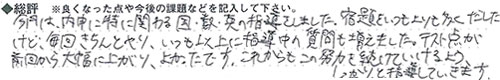 ◆総評 ※良くなった点や今後の課題などを記入して下さい。
今月は、内申に特に関わる国・数・英の指導をしました。宿題をいつもより多くだした
けど、毎回きちんとやり、いつも以上に指導中の質問も増えました。テスト点が
前回から大幅に上がり、よかったです。これからもこの努力を続けていけるよう、
しっかりと指導していきます